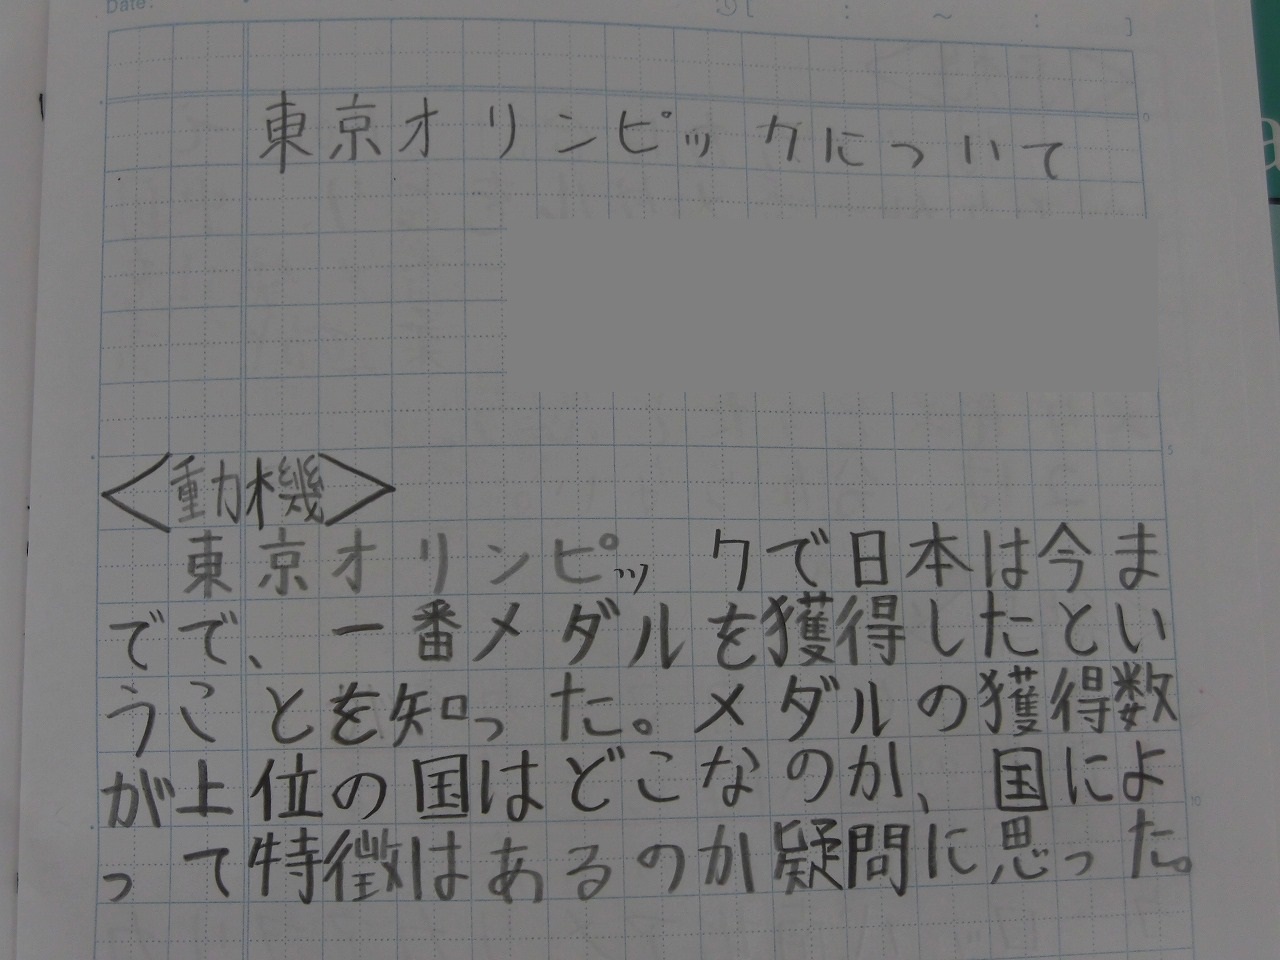 Date:
東京オリンピックについて
<動機>
東京オリンピックで日本は今ま
でで、一番メダルを獲得したとい
うことを知った。メダルの獲得数
が上位の国はどこなのか、国によ
って特徴はあるのか疑問に思った。